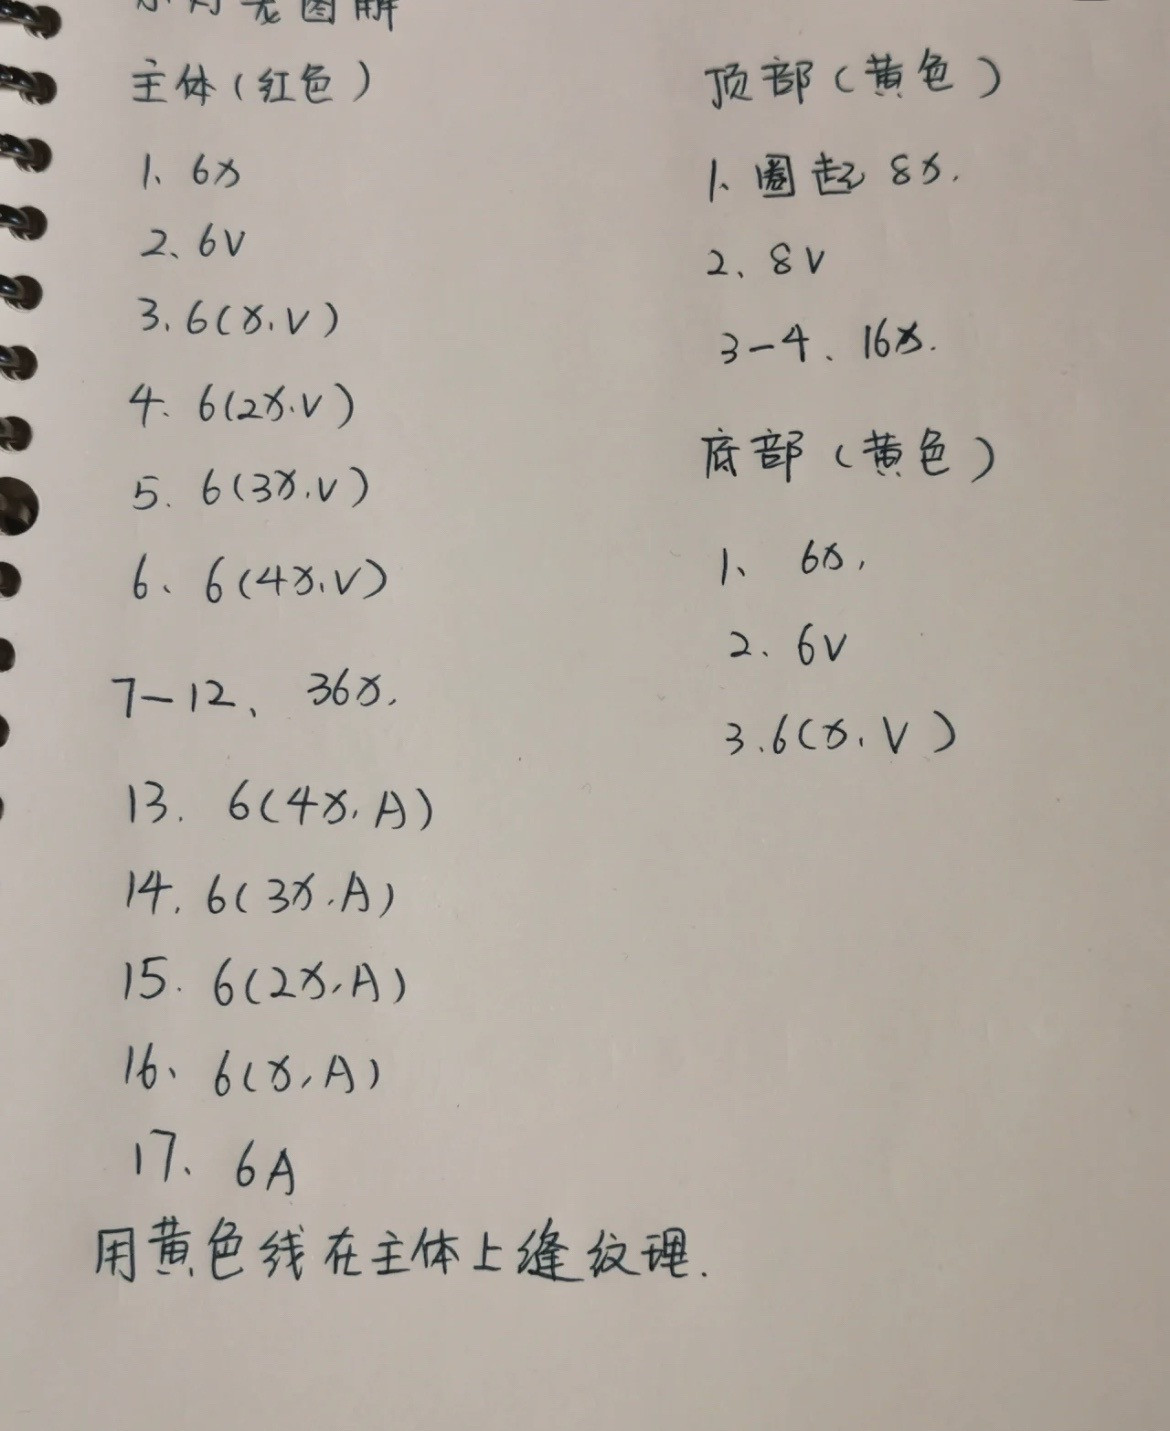 小灯笼图解
主体(红色)
1、6x
2、6V
3.6(x.V)
4.6(2x.V)
5.6(3x.V)
6、6(4x.V)
7-12、36x.
13.6(4x.A)
14.6(3x.A)
15.6(2x.A)
16、6(x.A)
17、6A
用黄色线在主体上缝纹理.
顶部(黄色)
1、圈起8x.
2、8V
3-4、16x.
底部(黄色)
1、6x,
2、6V
3.6(x.V)